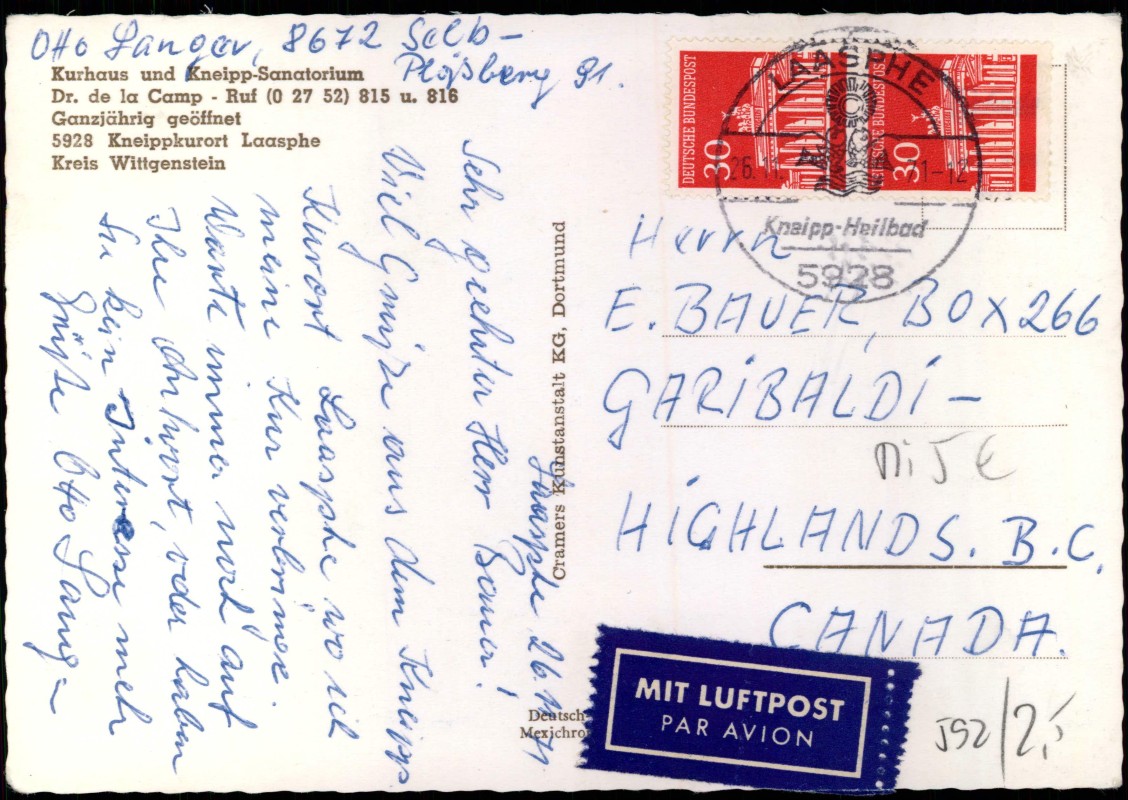 Otto Langer, 8672 Selb-
Plößberg 91.
Kurhaus und Kneipp-Sanatorium
Dr. de la Camp - Ruf (0 27 52) 815 u. 816
Ganzjährig geöffnet
5928 Kneippkurort Laasphe
Kreis Wittgenstein
Laasphe 26.11.71
Sehr geehrter Herr Bauer!
Viel Grüße aus dem Kneipp
Kurort Laasphe wo ich
meine Kur verbringe.
Warte immer noch auf
Ihre Antwort, oder haben
Sie kein Interesse mehr
Grüße Otto Lang
Cramers Kunstanstalt KG, Dortmund
Deutsch
Mexichro
DEUTSCHE BUNDESPOST
30
DEUTSCHE BUNDESPOST
30
LAASPHE
26.11.
1-12
Kneipp-Heilbad
5928
Herrn
E. BAUER, BOX 266
GARIBALDI-
HIGHLANDS. B.C.
CANADA.
MiJ €
MIT LUFTPOST
PAR AVION
J92/2,-